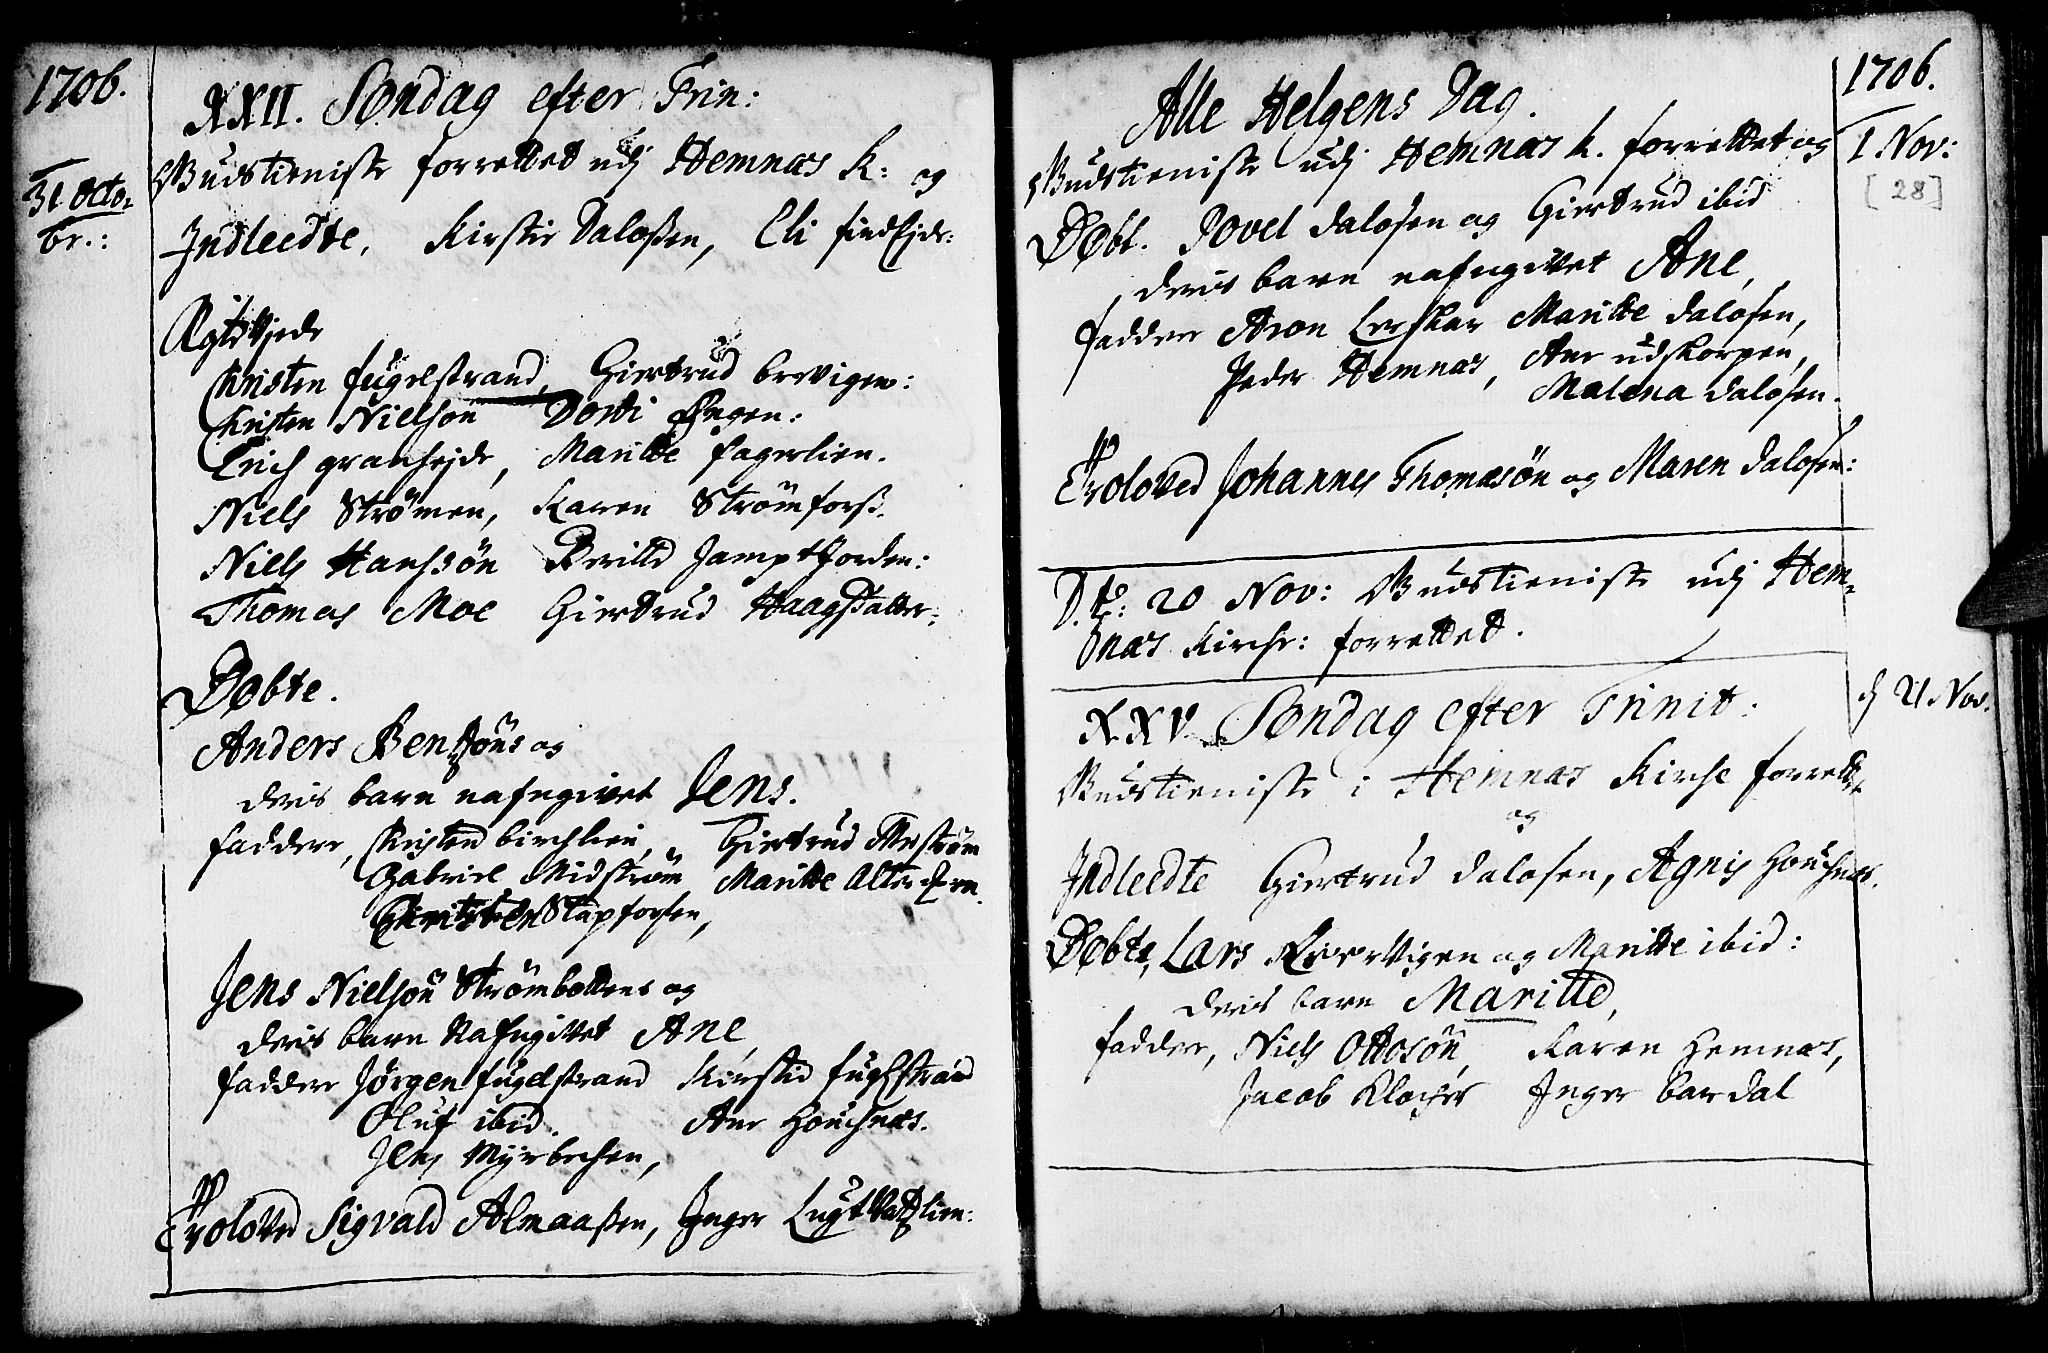 1706.
XXII. Søndag efter Trin:
31 Octo-
br.:
Gudstieniste forrettet udj Hemnæs K: og
Indleedte, Kirstie Daloßen, Eli findEjde:
Ægteviede
Christen fugelstrand, Giertrud brevigen:
Christen Nielsøn Dordi Engen:
Erich granhejde, Maritte fagerlien.
Niels Strømen, Karen Strømforß.
Niels Hanssøn Beritte Jamptjorden:
Thomas Moe Giertrud Haagsetter:
Døbte.
Anders Bentsøns og
deris barn nafngivet Jens.
faddere, Christen birchlien, Giertrud
Gabriel Midstrøm Maritte Alteren.
Christen Stapforsen,
Jens Nielsøn Strømbottens og
deris barn Nafngivet Ane
faddere Jørgen fugelstrand Kirstie fuglstrand
Oluf ibid. Ane houchnæs.
Jens Myrbechen,
Troloved Sigvald Almaaßen, Inger Lugtvatslien:
1706.
Alle Helgens Dag.
1 Nov:
[28]
Gudstieniste udj Hemnæs k. forrettet og
Døbt. Povel dalosen og Giertrud ibid
deris barn nafngivet Ane,
faddere Aron Lerskar Maritte dalosen,
Peder Hemnæs, Ane udskorpen,
Malena dalosen.
Troloved Johannes Thomæsøn og Maren dalosen:
D. to: 20 Nov: Gudstieniste udj Hem-
næs Kirche: forrettet.
d 21 Nov.
XXV. Søndag efter Trinit:
Gudstieniste i Hemnæs Kirche forrett:
og
Indleedte Giertrud dalosen, Agnis houchnæs.
Døbte, Lars Leervigen og Maritte ibid:
deris barn Maritte,
faddere, Niels Ottosøn, Karen Hemnæs,
Jacob Klocher Inger bardal